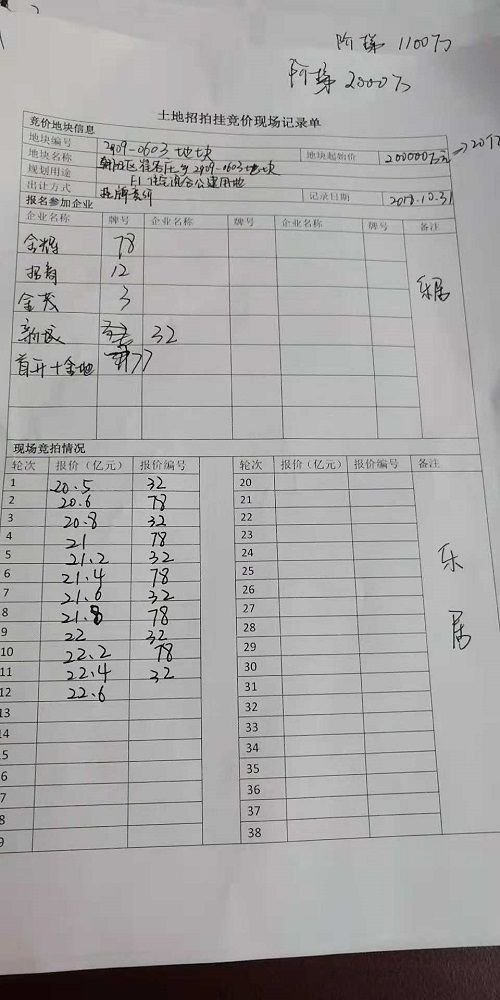 阶梯 1100万
阶梯 2000万
土地招拍挂竞价现场记录单
竞价地块信息
地块编号 2909-0603地块 地块起始价 200000万元→20亿
地块名称 朝阳区 乡2909-0603地块
规划用途 F1住宅混合公建用地
出让方式 挂牌竞价 记录日期 2018.10.31
报名参加企业
企业名称 牌号 企业名称 牌号 企业名称 牌号 备注
金辉 78
招商 12
金茂 3
新城 32
首开+金地 77
乐居
现场竞拍情况
轮次 报价（亿元） 报价编号 轮次 报价（亿元） 报价编号 备注
1 20.5 32 20
2 20.6 78 21
3 20.8 32 22
4 21 78 23
5 21.2 32 24
6 21.4 78 25
7 21.6 32 26
8 21.8 78 27
9 22 32 28
10 22.2 78 29
11 22.4 32 30
12 22.6 31
13 32
14 33
5 34
6 35
7 36
8 37
9 38
乐
居